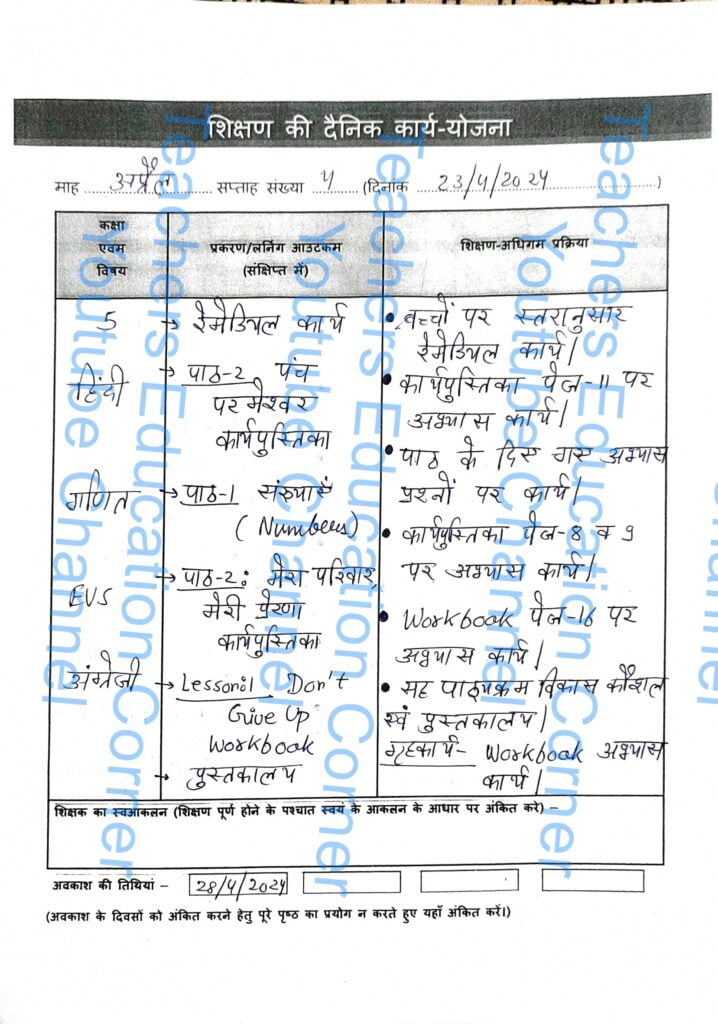 शिक्षण की दैनिक कार्य-योजना
माह अप्रैल सप्ताह संख्या 4 (दिनाक 23/4/2024)
कक्षा एवम विषय
प्रकरण/लर्निंग आउटकम (संक्षिप्त में)
शिक्षण-अधिगम प्रक्रिया
5
→ रेमेडियल कार्य
• बच्चों पर स्तरानुसार
रेमेडियल कार्य।
हिंदी
→ पाठ-2 पंच
परमेश्वर
कार्यपुस्तिका
• कार्यपुस्तिका पेज-11 पर
अभ्यास कार्य।
गणित
→ पाठ-1 संख्याएँ
(Numbers)
• पाठ के दिए गए अभ्यास
प्रश्नों पर कार्य।
• कार्यपुस्तिका पेज-8 व 9
पर अभ्यास कार्य।
EVS
→ पाठ-2: मेरा परिवार,
मेरी प्रेरणा
कार्यपुस्तिका
• Workbook पेज-16 पर
अभ्यास कार्य।
अंग्रेजी
→ Lesson:1 Don't
Give Up
Workbook
→ पुस्तकालय
• सह पाठ्यक्रम विकास कौशल
एवं पुस्तकालय।
गृहकार्य- Workbook अभ्यास
कार्य।
शिक्षक का स्वआकलन (शिक्षण पूर्ण होने के पश्चात स्वयं के आकलन के आधार पर अंकित करे) –
अवकाश की तिथियां – 28/4/2024
(अवकाश के दिवसों को अंकित करने हेतु पूरे पृष्ठ का प्रयोग न करते हुए यहाँ अंकित करें।)
Teachers Education Corner
Youtube Channel
Teachers Education Corner
Youtube Channel
Teachers Education Corner
Youtube Channel